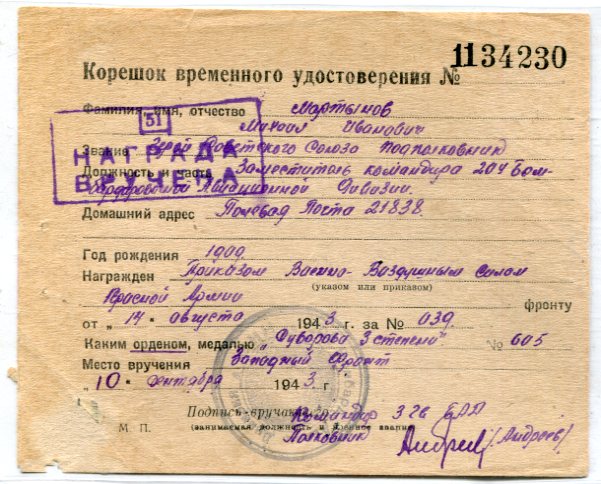 1134230
Корешок временного удостоверения №
Фамилия, имя, отчество Мартынов
Михаил Иванович
51
НАГРАДА
ВРУЧЕНА
Звание Герой Советского Союза подполковник
Должность и часть Заместитель командира 204 Бом-
бардировочной Авиационной Дивизии.
Домашний адрес Полевая Почта 21838.
Год рождения 1909.
Награжден Приказом Военно-Воздушным Силам
(указом или приказом)
Красной Армии фронту
от „ 14 " августа 1943 г. за № 039.
Каким орденом, медалью „Суворова 3 степени" № 605
Место вручения Западный Фронт
„ 10 " сентября 1943 г.
Подпись вручившего Командир 3 Гв БАД
М. П. (занимаемая должность и военное звание)
Полковник (Андреев)